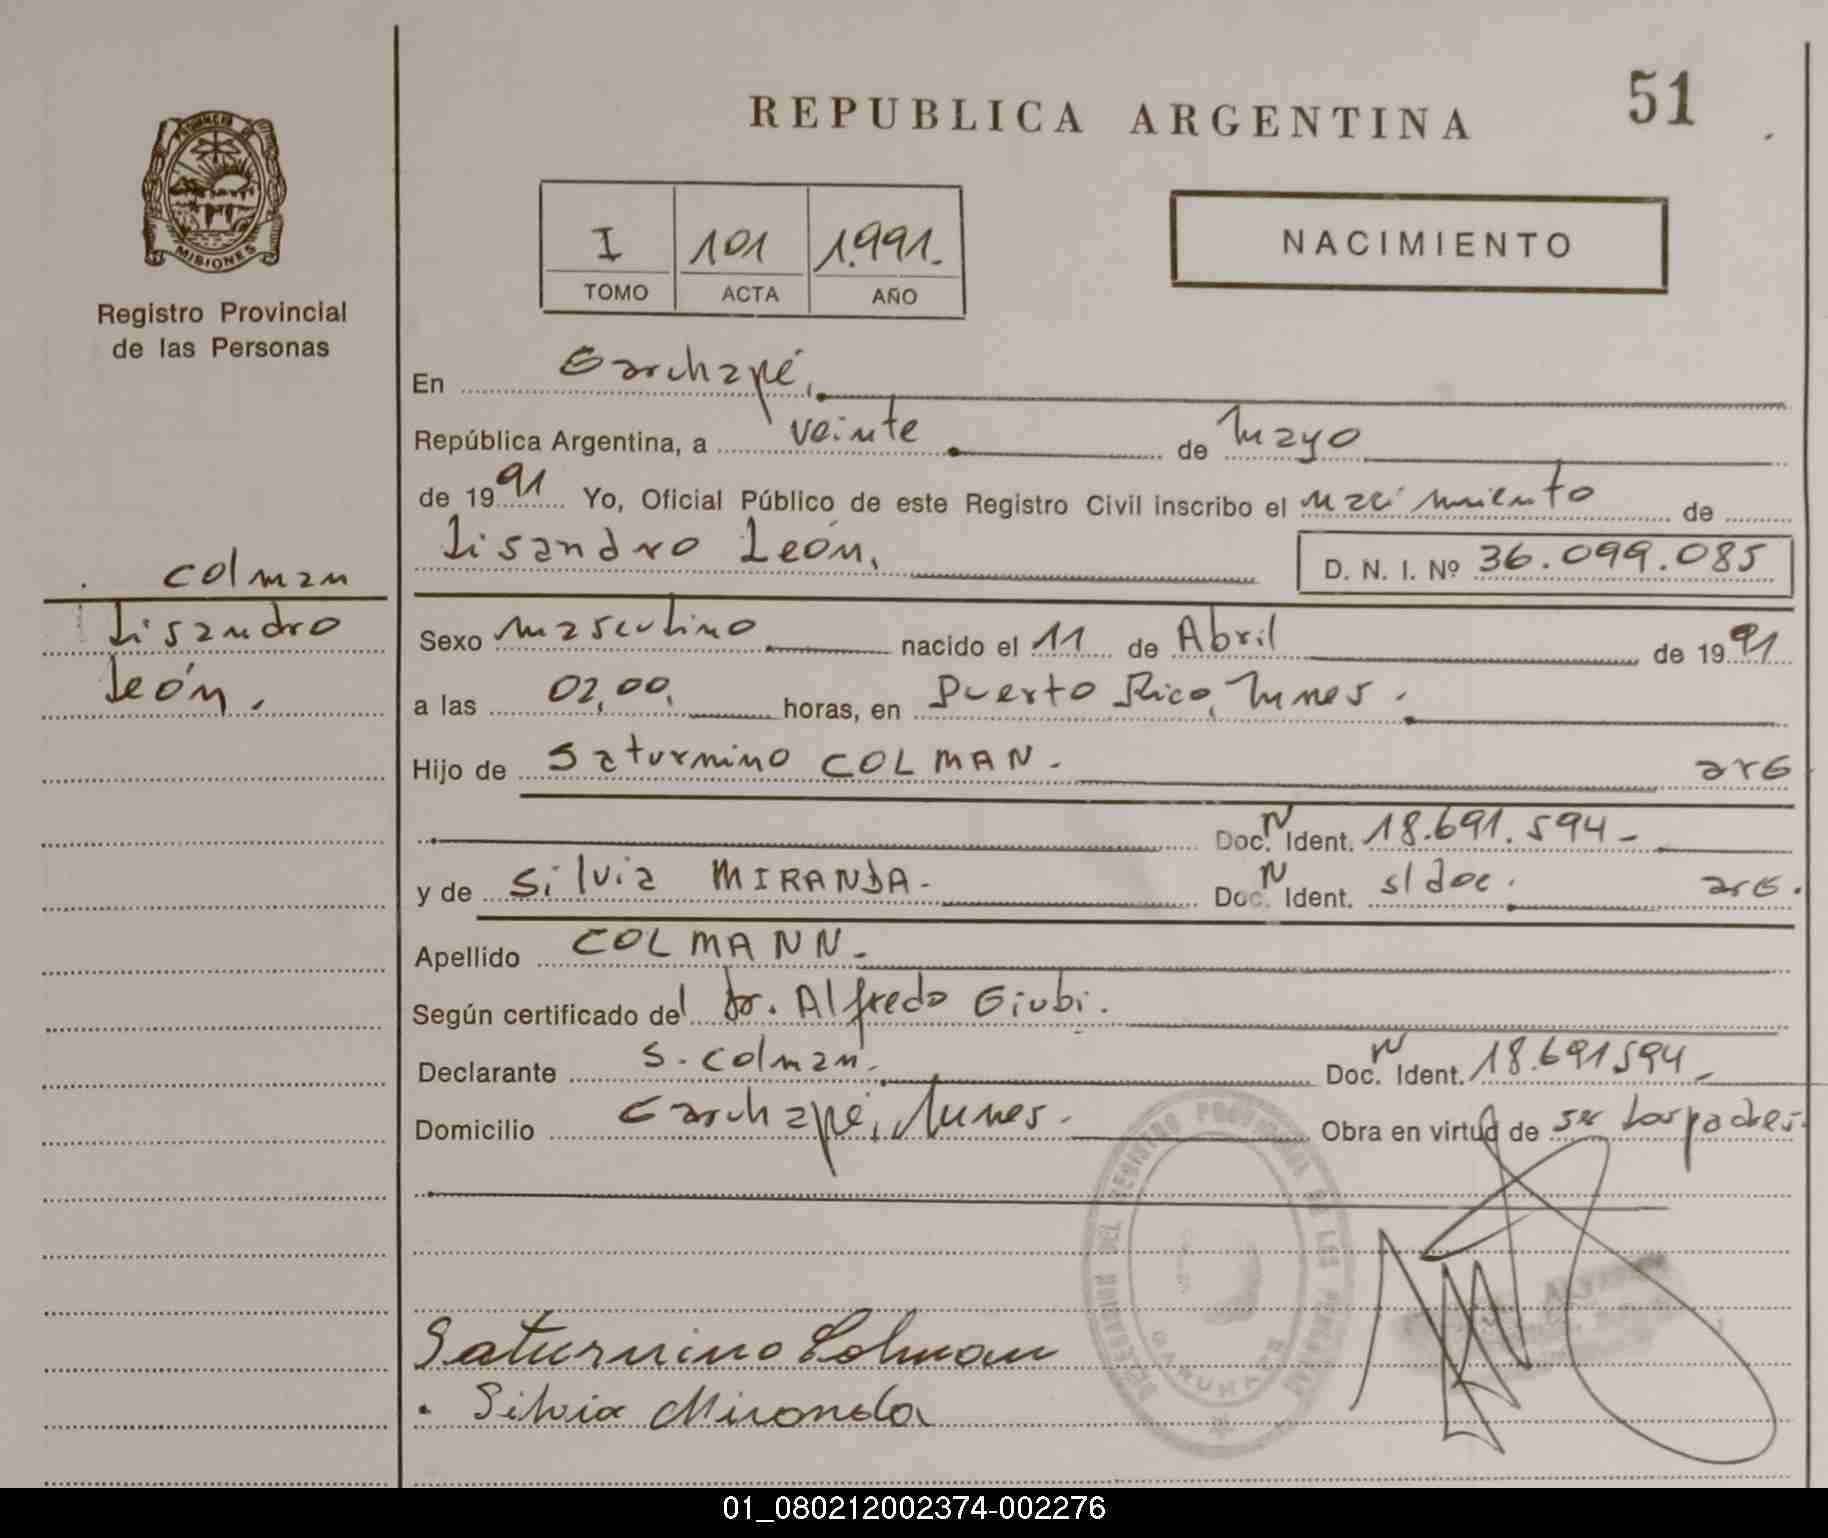 REPUBLICA ARGENTINA
51
PROVINCIA DE
MISIONES
Registro Provincial
de las Personas
I 101 1.991.
TOMO ACTA AÑO
NACIMIENTO
En Garuhapé,
República Argentina, a veinte de Mayo
de 1991 Yo, Oficial Público de este Registro Civil inscribo el nacimiento de
Lisandro León,
D. N. I. Nº 36.099.085
Colman
Lisandro
León.
Sexo masculino nacido el 11 de Abril de 1991
a las 02,00, horas, en Puerto Rico, Mnes.
Hijo de Saturnino COLMAN. arg
Doc. N Ident. 18.691.594-
y de Silvia MIRANDA- Doc. N Ident. s/doc. arg.
Apellido COLMANN.
Según certificado del Dr. Alfredo Giubi.
Declarante S. Colman. Doc. N Ident. 18.691594-
Domicilio Garuhapé, Mnes. Obra en virtud de ser los padres.
DEL REGISTRO PROVINCIAL DE LAS PERSONAS
GARUHAPE
Saturnino Colman
Silvia Miranda
01_080212002374-002276